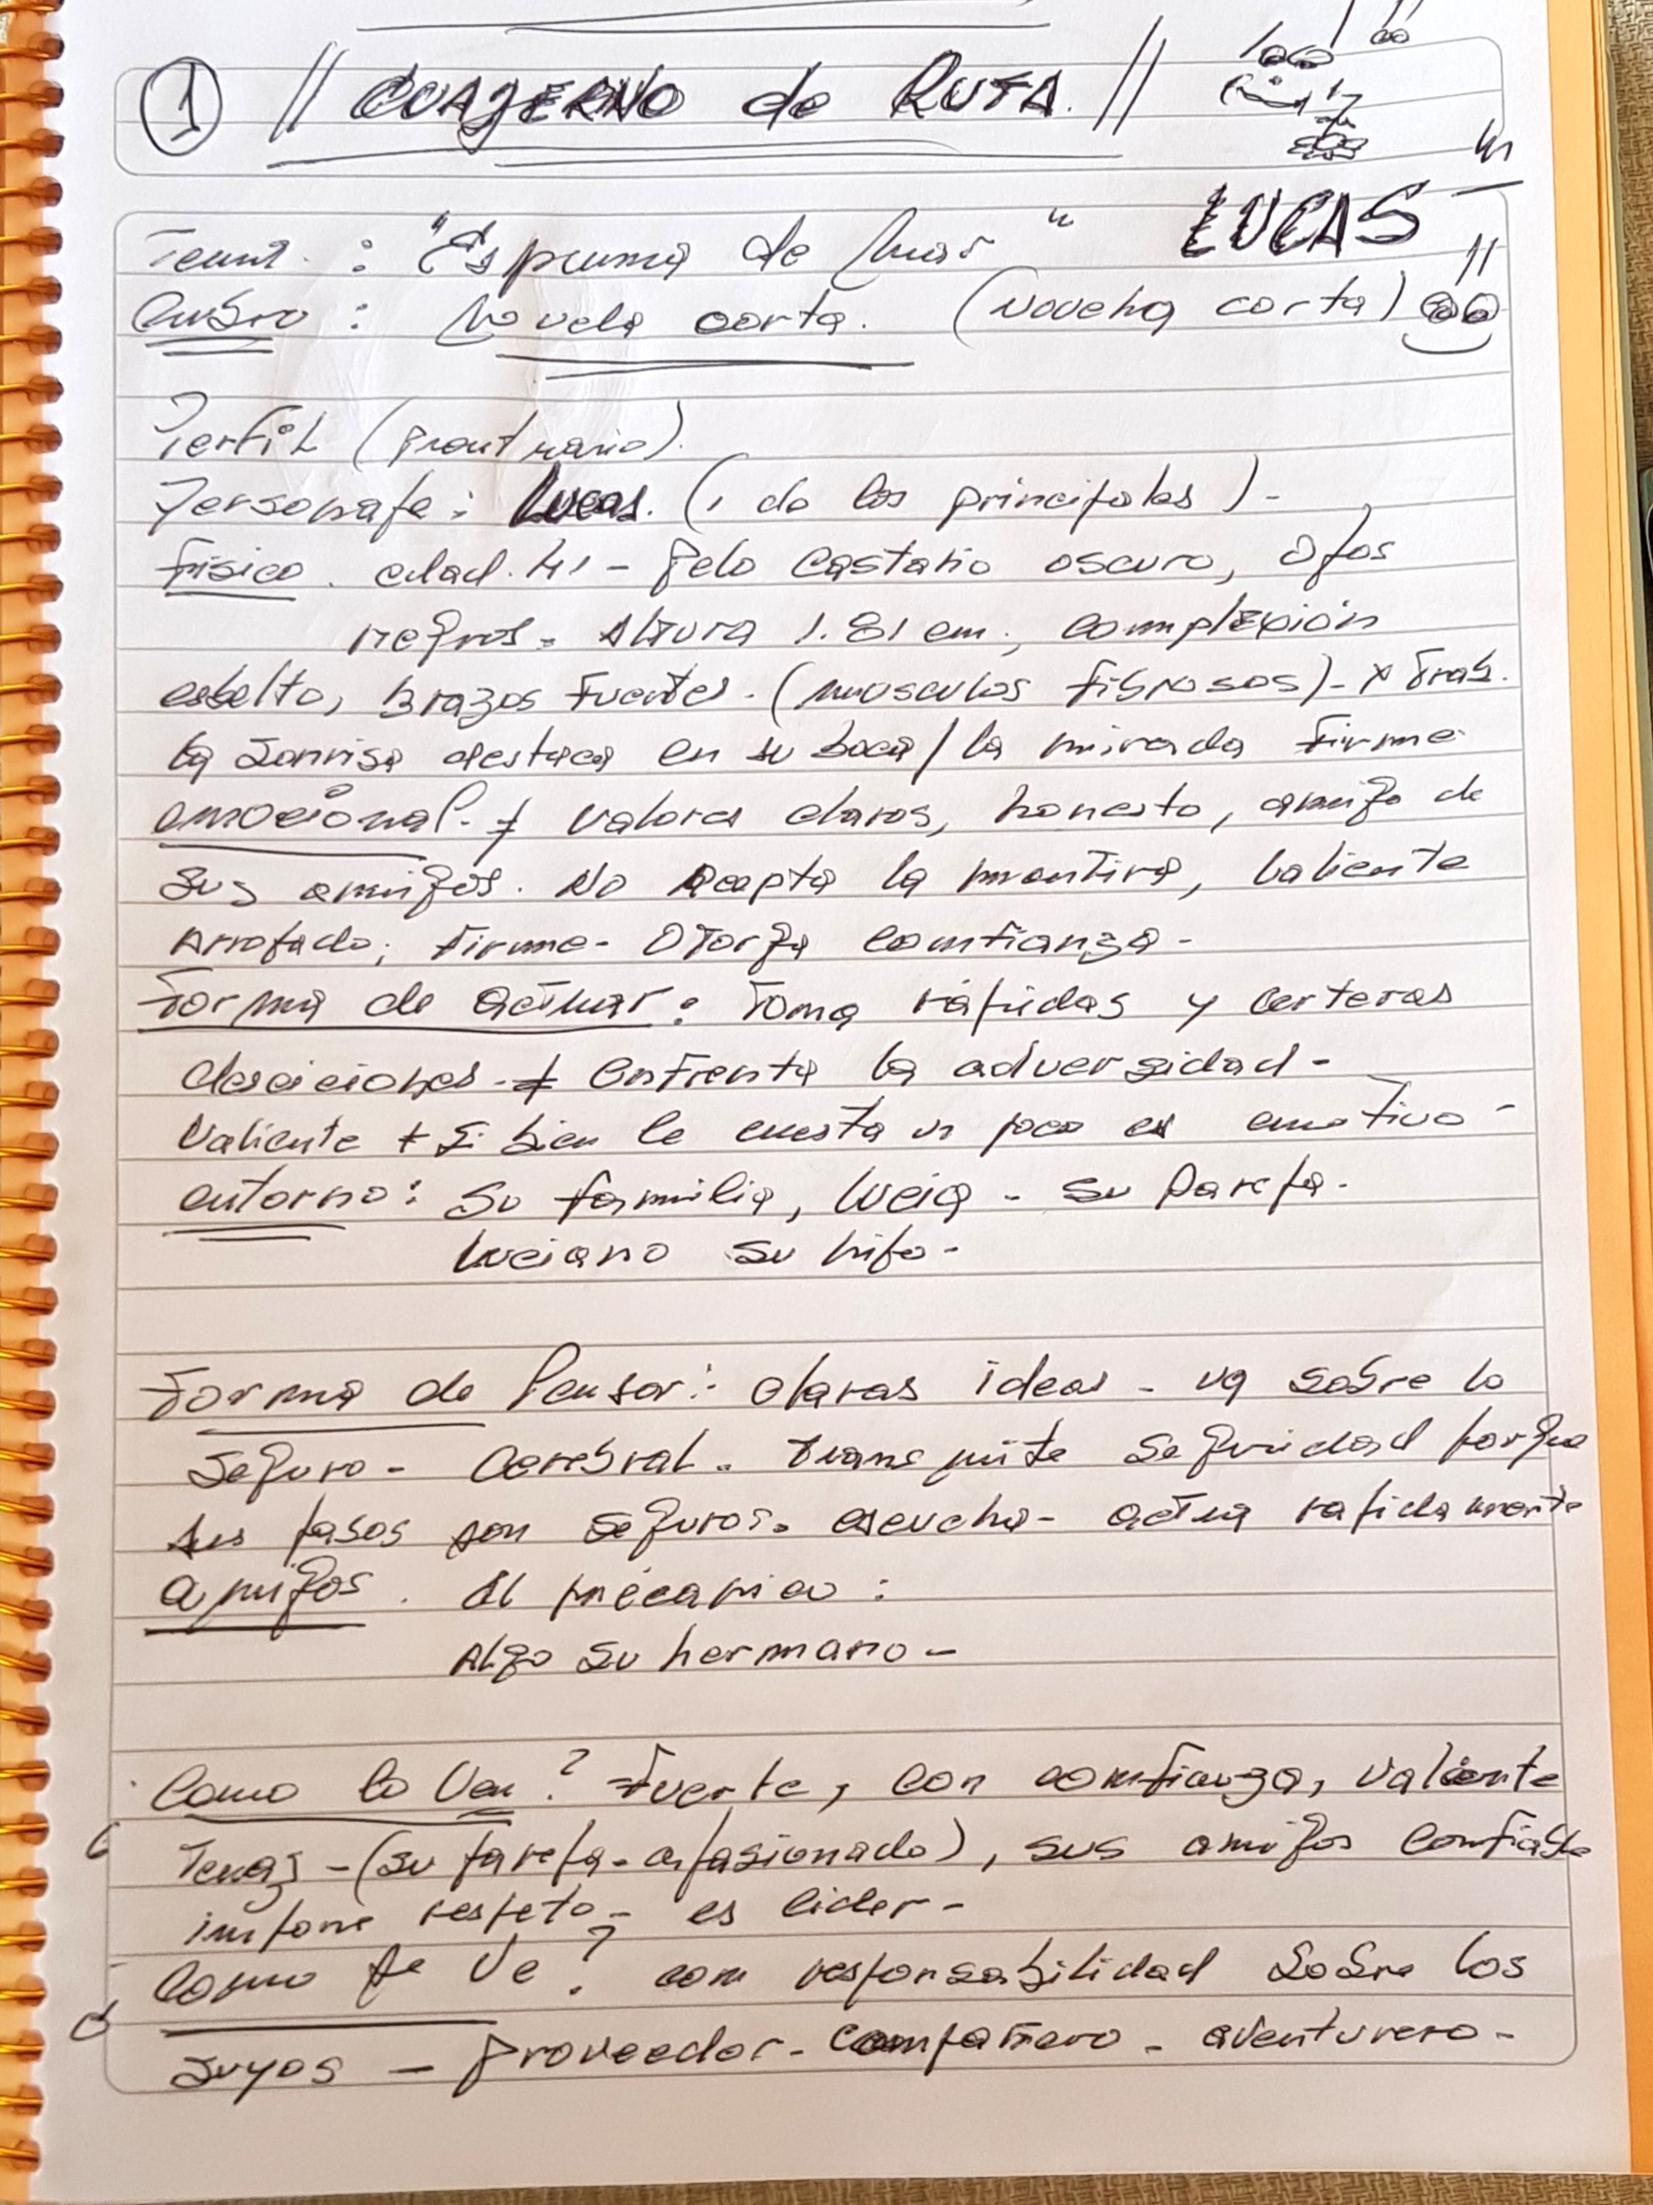 1 // CUADERNO de RUTA. //
LUCAS
Tema : "Espuma de mar"
Curso : Novela corta. (Novela corta)
Perfil (prontuario).
Personaje : Lucas. (1 de los principales) -
Fisico. edad. 41 - pelo castaño oscuro, ojos
negros. Altura 1.81 cm., complexión
esbelto, brazos fuertes. (musculos fibrosos) - x Trab.
la sonrisa destaca en su boca / la mirada firme
emocional. + valores claros, honesto, amigo de
sus amigos. No acepta la mentira, valiente
arrojado, firme - Otorga comfianza -
Forma de actuar : Toma rápidas y certeras
desciciones - + enfrenta la adversidad -
Valiente + si bien le cuesta un poco es emotivo -
entorno : Su familia, Lucia - su pareja.
Luciano su hijo -
Forma de Pensar : claras ideas - va sobre lo
seguro - Cerebral. transmite seguridad porque
sus pasos son seguros. escucha - actua rapidamente
amigos. El mécanico :
Algo su hermano -
Como lo Ven ? Fuerte, con comfianza, valiente
Tenaz - (su pareja - apasionado), sus amigos comfiable
impone respeto - es lider -
Como se Ve ? com responsabilidad sobre los
suyos - proveedor - compañero - aventurero -